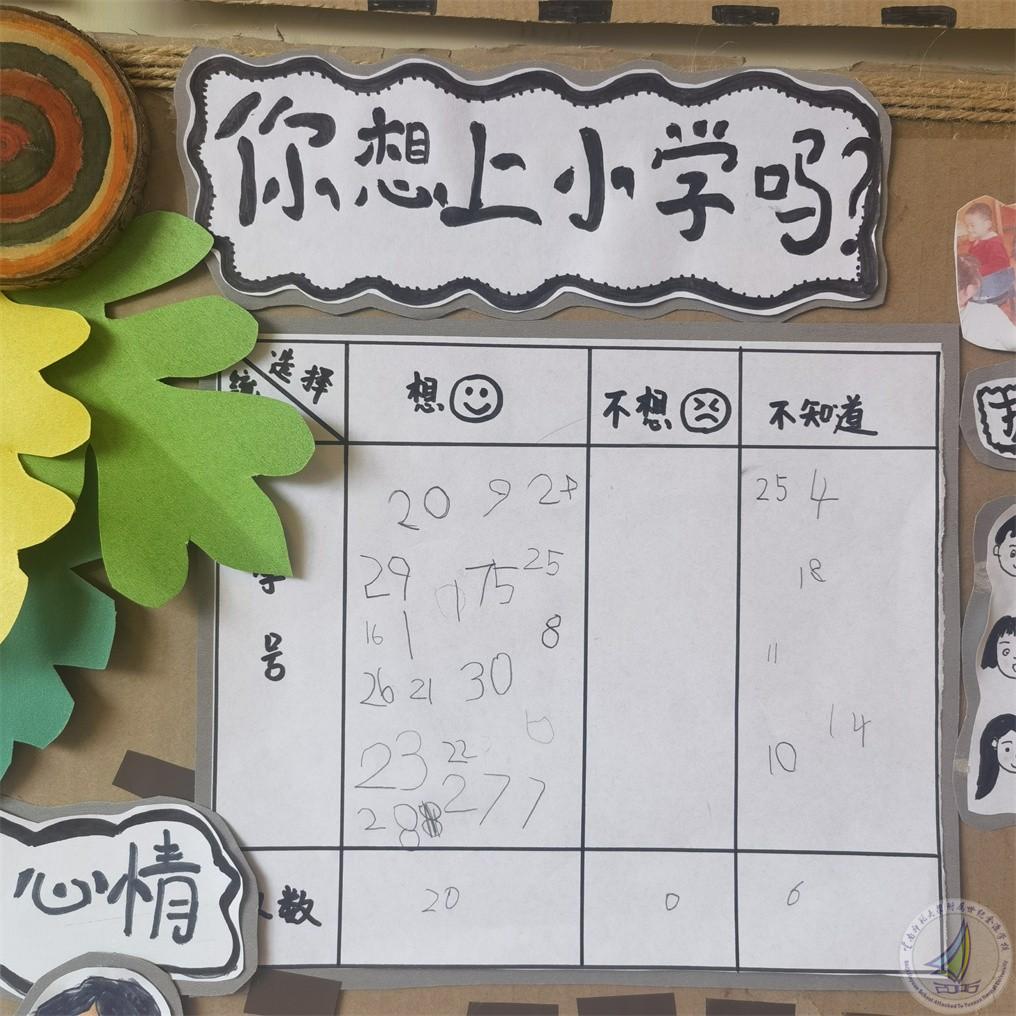 你想上小学吗?
选择
想 不想 不知道
20 9 25 4
29 75 25 18
16 1 8 11
26 21 30
14
23 22 10
277
28
学
号
数 20 0 6
心情